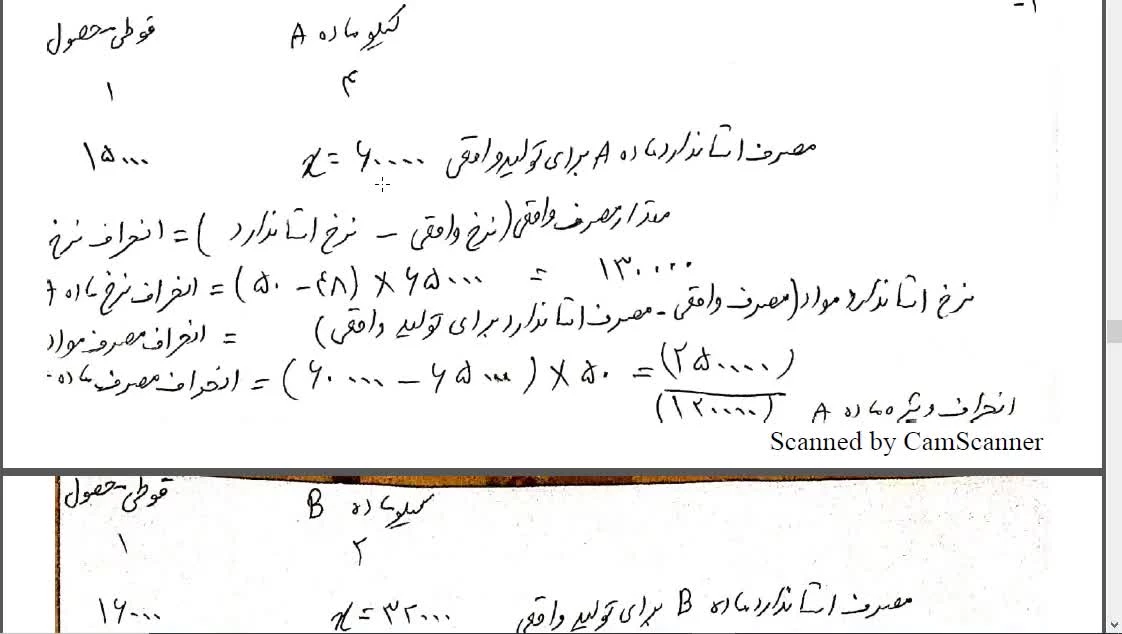 ۱-
کیلو ماده A قوطی محصول
۴ ۱
مصرف استاندارد ماده A برای تولید واقعی x = ۶۰۰۰۰ ۱۵۰۰۰
مقدار مصرف واقعی (نرخ واقعی - نرخ استاندارد) = انحراف نرخ
۱۳۰۰۰۰ = (۵۰ - ۴۸) × ۶۵۰۰۰ = انحراف نرخ ماده A
نرخ استاندارد مواد (مصرف واقعی - مصرف استاندارد برای تولید واقعی) = انحراف مصرف مواد
(۲۵۰۰۰۰) = (۶۰۰۰۰ - ۶۵۰۰۰) × ۵۰ = انحراف مصرف ماده
انحراف ویژه ماده A (۱۲۰۰۰۰)
Scanned by CamScanner
کیلو ماده B قوطی محصول
۲ ۱
مصرف استاندارد ماده B برای تولید واقعی x = ۳۲۰۰۰ ۱۶۰۰۰